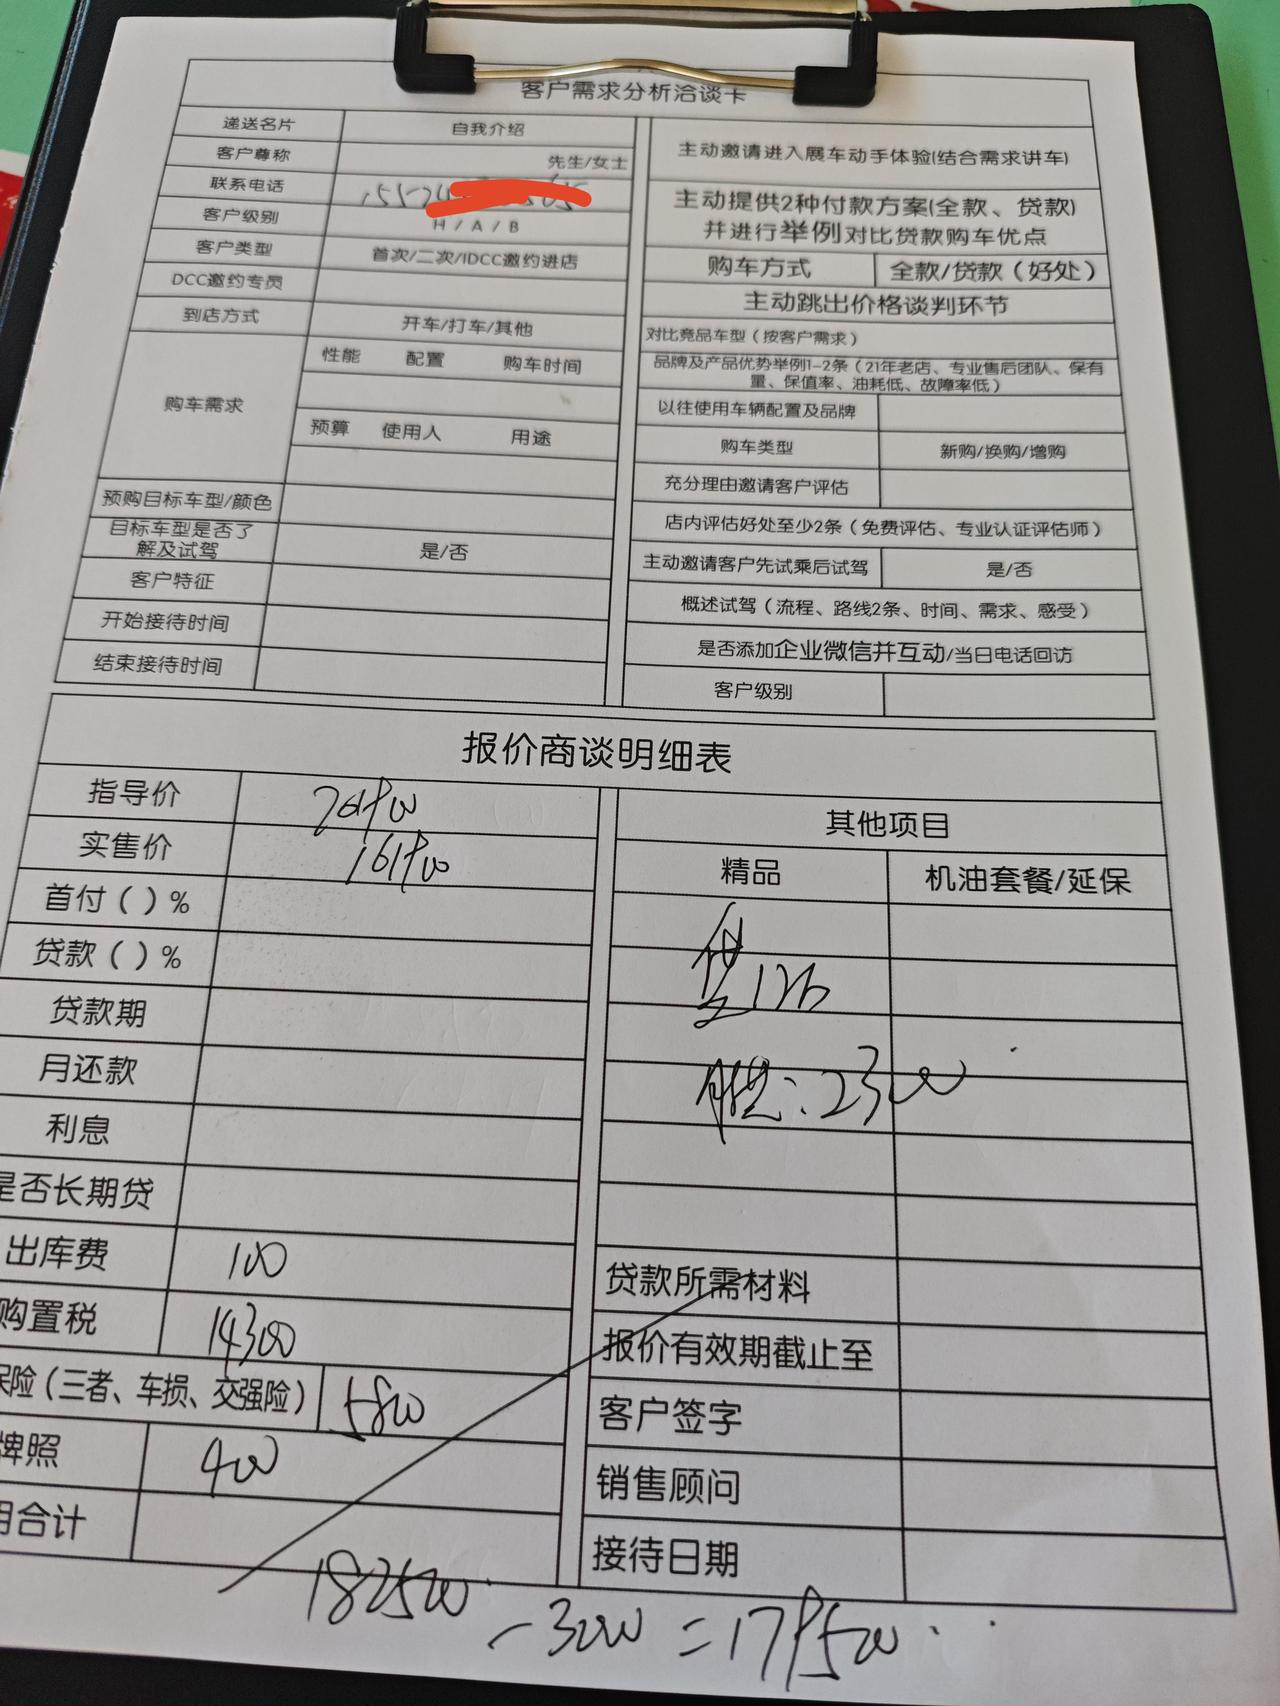 客户需求分析洽谈卡
递送名片 自我介绍
客户尊称 先生/女士
联系电话
客户级别 H / A / B
客户类型 首次/二次/IDCC邀约进店
DCC邀约专员
到店方式 开车/打车/其他
购车需求 性能 配置 购车时间
预算 使用人 用途
预购目标车型/颜色
目标车型是否了解及试驾 是/否
客户特征
开始接待时间
结束接待时间
主动邀请进入展车动手体验(结合需求讲车)
主动提供2种付款方案(全款、贷款)
并进行举例对比贷款购车优点
购车方式 全款/贷款（好处）
主动跳出价格谈判环节
对比竞品车型（按客户需求）
品牌及产品优势举例1-2条（21年老店、专业售后团队、保有
量、保值率、油耗低、故障率低）
以往使用车辆配置及品牌
购车类型 新购/换购/增购
充分理由邀请客户评估
店内评估好处至少2条（免费评估、专业认证评估师）
主动邀请客户先试乘后试驾 是/否
概述试驾（流程、路线2条、时间、需求、感受）
是否添加企业微信并互动/当日电话回访
客户级别
报价商谈明细表
指导价
实售价 161900
首付（ ）%
贷款（ ）%
贷款期
月还款
利息
是否长期贷
出库费 100
购置税 14300
保险（三者、车损、交强险） 5800
牌照 400
用合计
其他项目
精品 机油套餐/延保
: 2300
贷款所需材料
报价有效期截止至
客户签字
销售顾问
接待日期
182500 -3000 = 179500